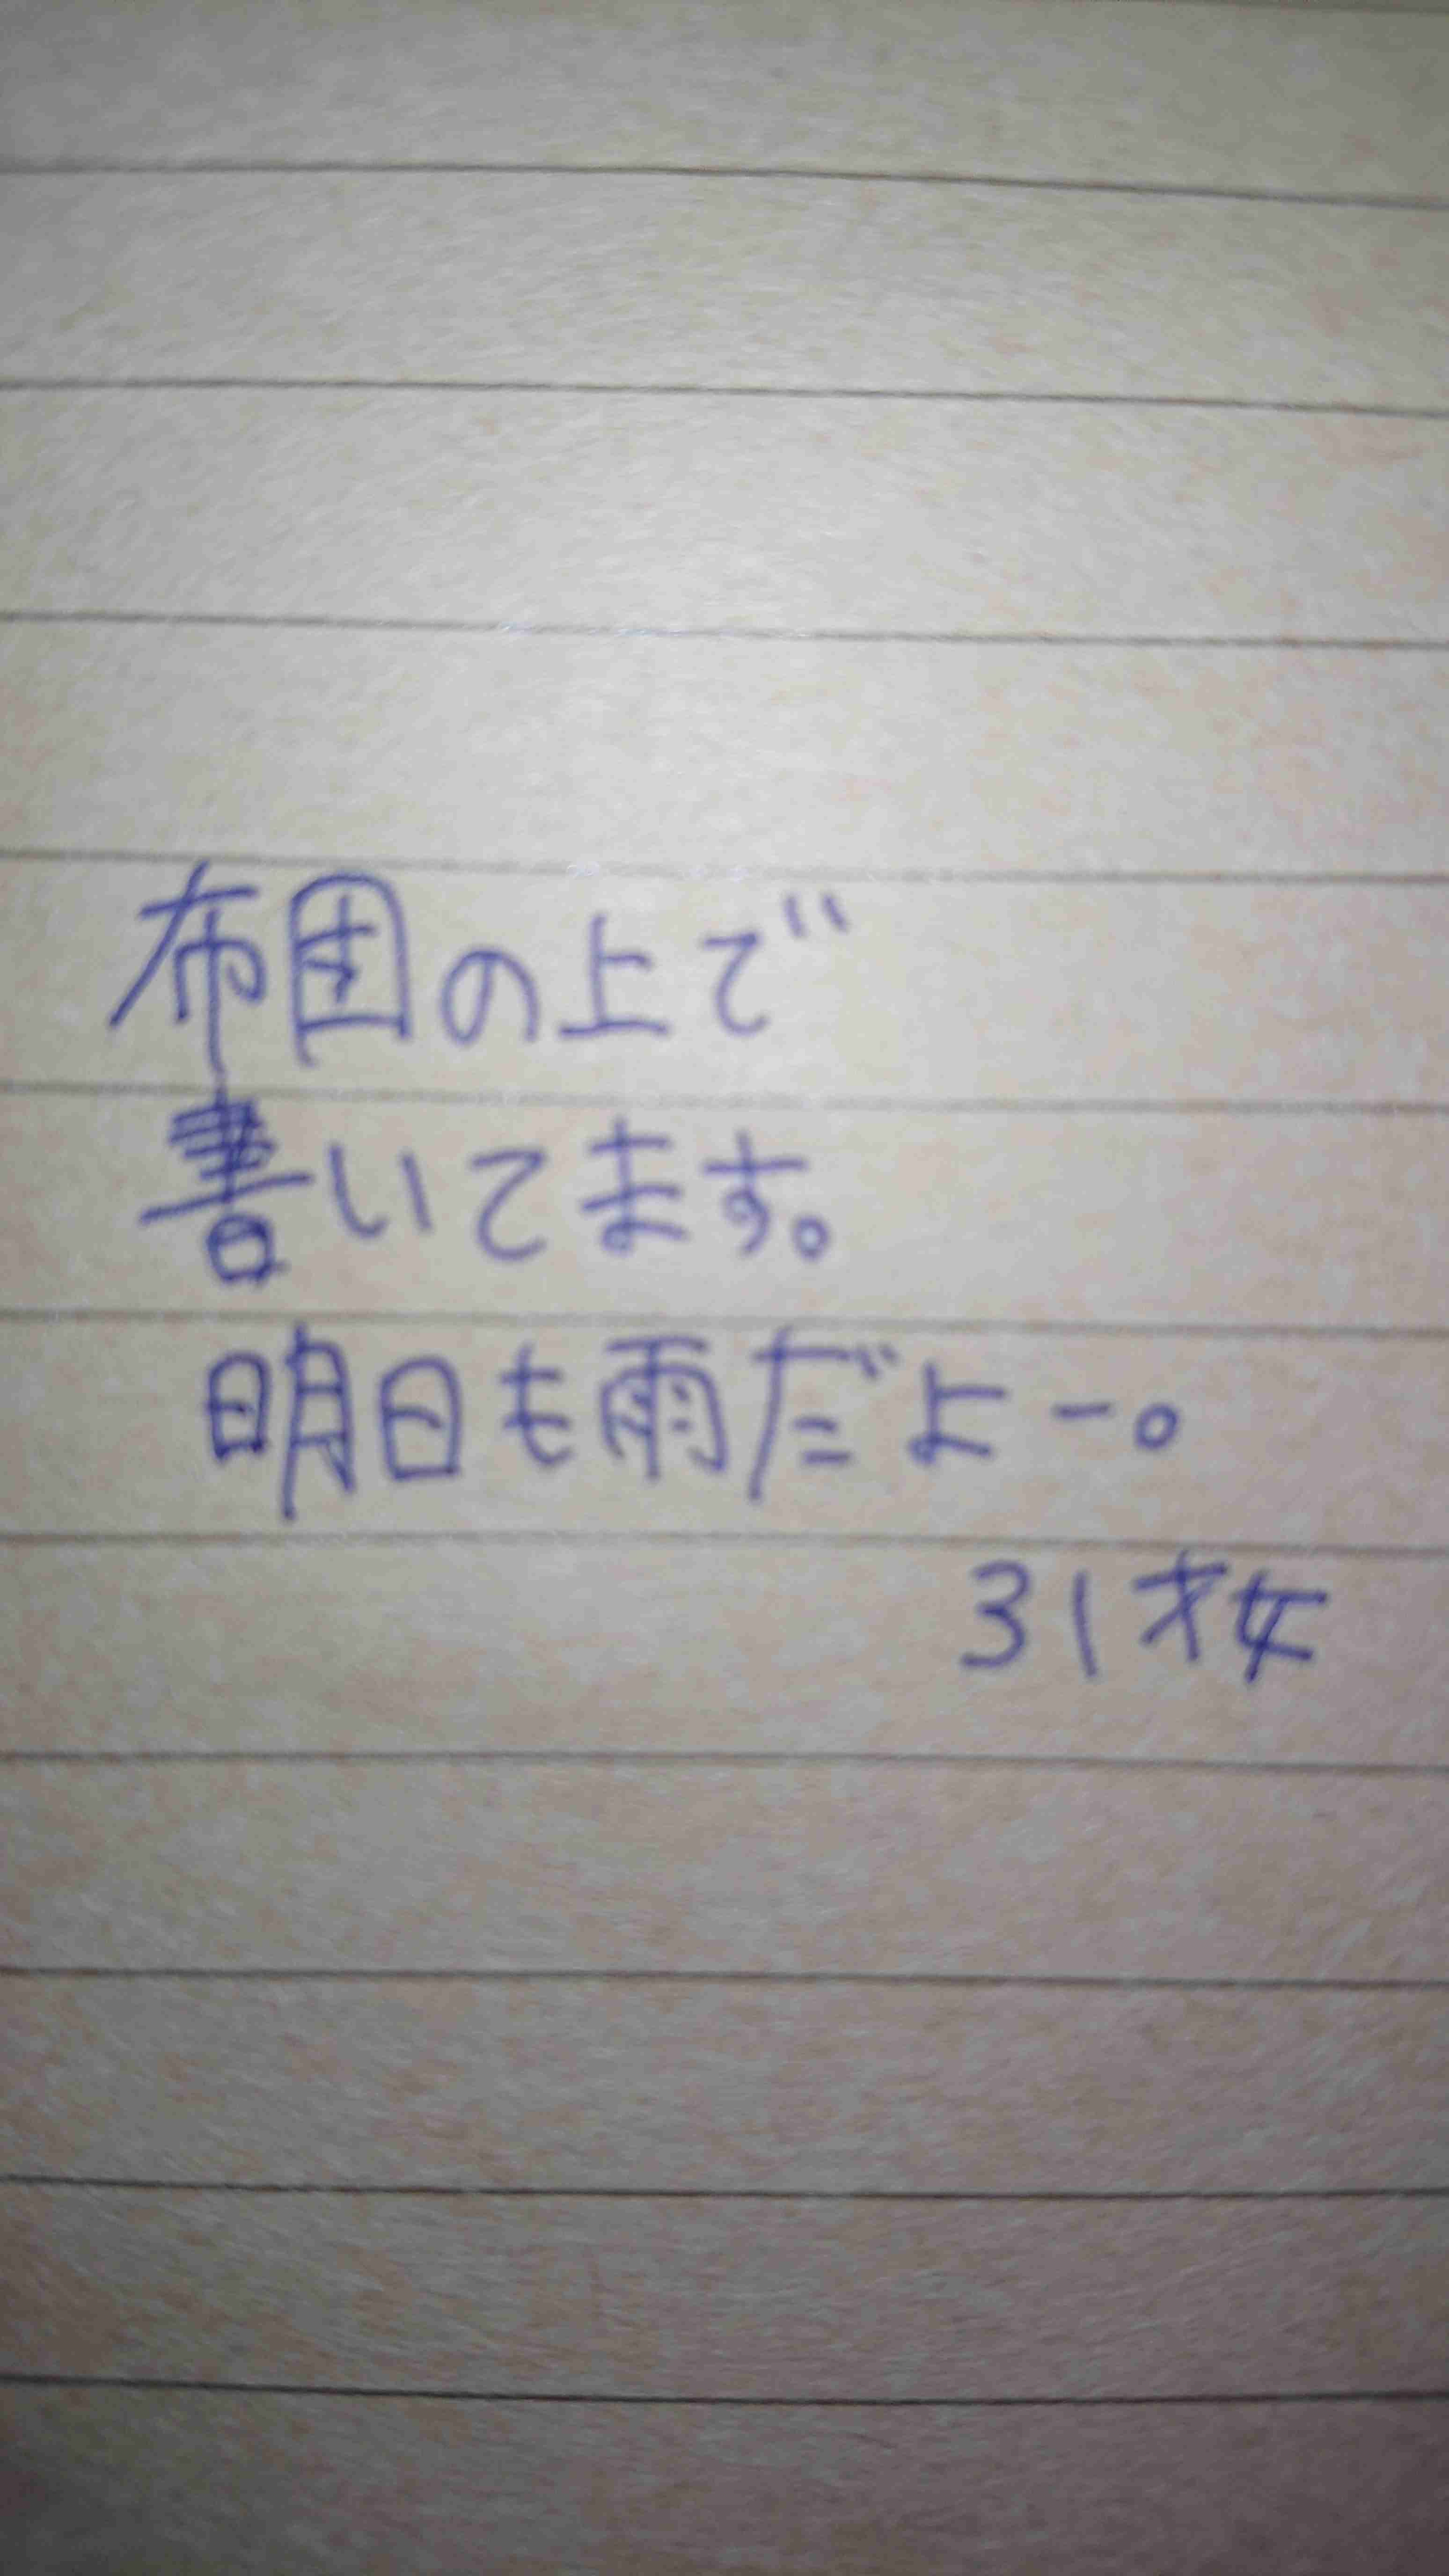 布団の上で
書いてます。
明日も雨だよー。
31才女